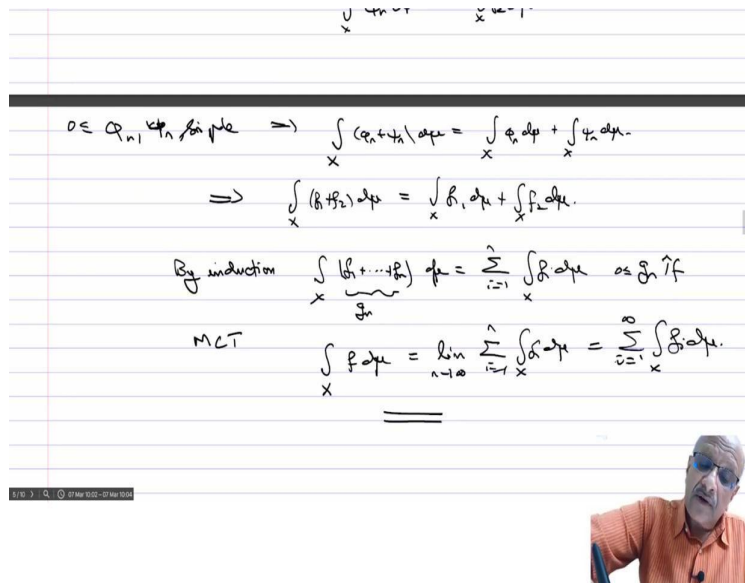 0≤ φ_n, ψ_n simple ⇒ ∫_X (φ_n+ψ_n) dμ = ∫_X φ_n dμ + ∫_X ψ_n dμ.
⇒ ∫_X (f_1+f_2) dμ = ∫_X f_1 dμ + ∫_X f_2 dμ.
By induction ∫_X (f_1+⋯+f_n) dμ = Σ_{i=1}^n ∫_X f_i dμ 0≤ g_n ↑f
g_n
MCT ∫_X f dμ = lim_{n→∞} Σ_{i=1}^n ∫_X f_i dμ = Σ_{i=1}^∞ ∫_X f_i dμ.
5/10 07 Mar 10:02 - 07 Mar 10:04